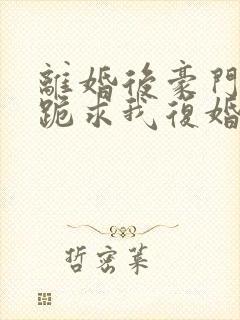 離婚後豪門
跪求我復婚
哲密葉